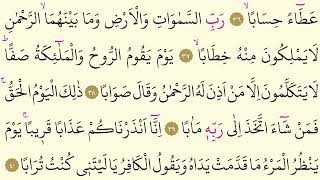 عَطَٓاءً حِسَابًاۙ ﴿٣٦﴾ رَبِّ السَّمٰوَاتِ وَالْاَرْضِ وَمَا بَيْنَهُمَا الرَّحْمٰنِ
لَا يَمْلِكُونَ مِنْهُ خِطَابًاۚ ﴿٣٧﴾ يَوْمَ يَقُومُ الرُّوحُ وَالْمَلٰٓئِكَةُ صَفًّاۜ
لَا يَتَكَلَّمُونَ اِلَّا مَنْ اَذِنَ لَهُ الرَّحْمٰنُ وَقَالَ صَوَابًا ﴿٣٨﴾ ذٰلِكَ الْيَوْمُ الْحَقُّۚ
فَمَنْ شَٓاءَ اتَّخَذَ اِلٰى رَبِّهٖ مَاٰبًا ﴿٣٩﴾ اِنَّٓا اَنْذَرْنَاكُمْ عَذَابًا قَرِيبًاۚ يَوْمَ
يَنْظُرُ الْمَرْءُ مَا قَدَّمَتْ يَدَاهُ وَيَقُولُ الْكَافِرُ يَا لَيْتَنٖي كُنْتُ تُرَابًا ﴿٤٠﴾